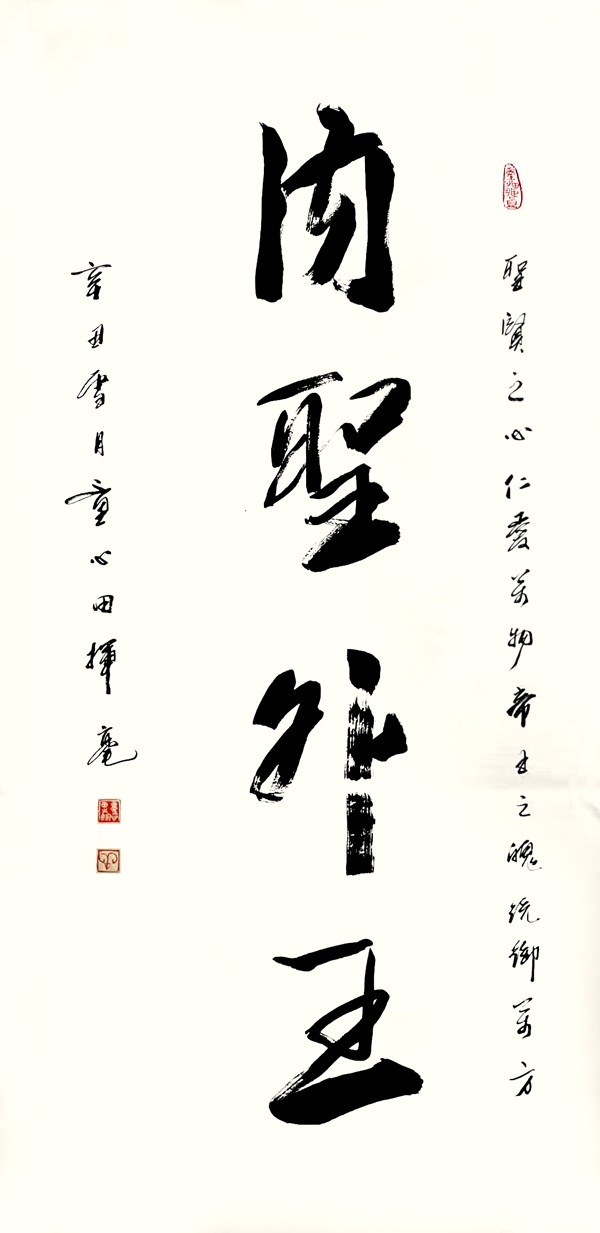 聖賢之心仁愛萬物帝王之魄統御萬方
內聖外王
辛丑雪月童心田揮毫